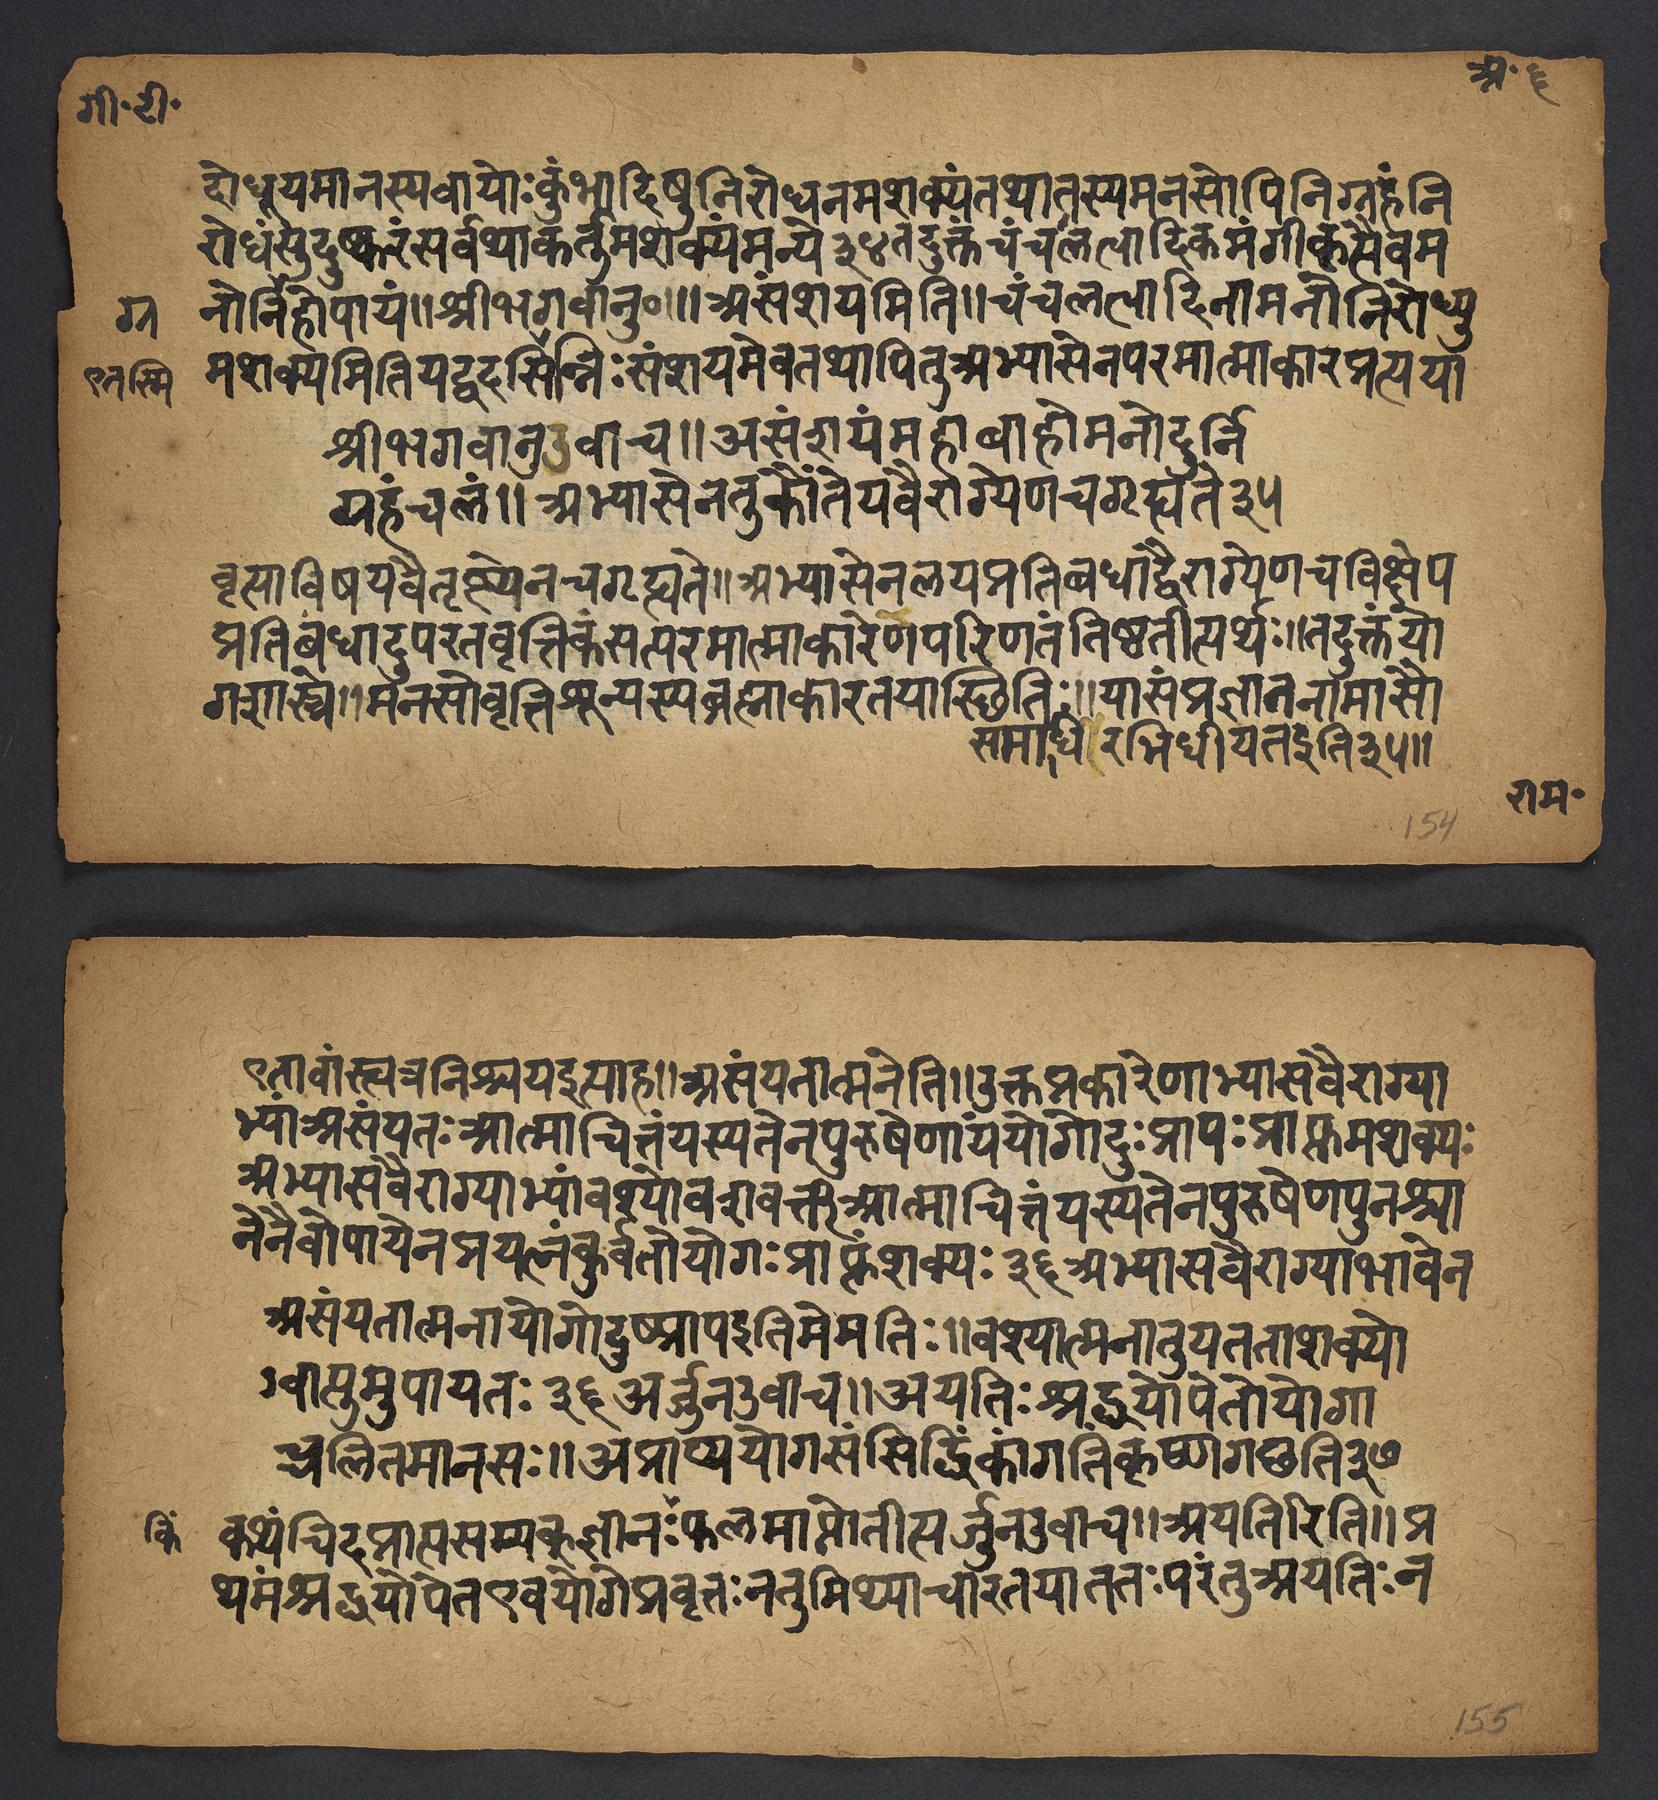 गी॰ टी॰
अ॰ ६
दोधूयमानस्यवायोःकुंभादिषुनिरोधनमशक्यंतथातस्यमनसोपिनिग्रहंनि
रोधंसुदुष्करंसर्वथाकर्तुमशक्यंमन्ये३४तदुक्तंचंचलत्वादिकमंगीकृत्यैवम
नोर्निहोपायं॥श्रीभगवानु०॥॥असंशयमिति॥चंचलत्वादिनामनोनिरोध्धु
ग्र
मशक्यमितियद्वदसिन्निःसंशयमेवतथापितुअभ्यासेनपरमात्माकारप्रत्यया
एतस्मि
श्रीभगवानुउवाच॥असंशयंमहाबाहोमनोदुर्नि
ग्रहंचलं॥अभ्यासेनतुकौंतेयवैराग्येणचगृह्यते३५
वृत्याविषयवैतृष्ण्येनचगृह्यते॥अभ्यासेनलयप्रतिबधाद्वैराग्येणचविक्षेप
प्रतिबंधादुपरतवृत्तिकंसत्परमात्माकारेणपरिणतंतिष्ठतीत्यर्थः॥तदुक्तंयो
गशास्त्रे॥मनसोवृत्तिशून्यस्यब्रह्माकारतयास्थितिः॥यासंप्रज्ञातनामासौ
समाधिरभिधीयतइति३५॥
राम॰
154
एतावांस्त्वत्रनिश्चयइत्याह॥असंयतात्मनेति॥उक्तप्रकारेणाभ्यासवैराग्या
भ्यांअसंयतःआत्माचित्तंयस्यतेनपुरुषेणायंयोगोदुःप्रापःप्राप्तुमशक्यः
अभ्यासवैराग्याभ्यांवश्योवशवर्त्तीआत्माचित्तंयस्यतेनपुरुषेणपुनश्चा
नेनैवोपायेनप्रयत्नंकुर्वतोयोगःप्राप्तुंशक्यः३६अभ्यासवैराग्याभावेन
असंयतात्मनायोगोदुष्प्रापइतिमेमतिः॥वश्यात्मनातुयतताशक्यो
ऽवाप्तुमुपायतः३६अर्जुनउवाच॥अयतिःश्रद्धयोपेतोयोगा
च्चलितमानसः॥अप्राप्ययोगसंसिद्धिंकांगतिंकृष्णगछति३७
किं
कथंचिदप्राप्तसम्यक्ज्ञानःफलमाप्नोतीत्यर्जुनउवाच॥अयतिरिति॥प्र
थमंश्रद्धयोपेतएवयोगेप्रवृत्तःनतुमिथ्याचारतयाततःपरंतुअयतिःन
155